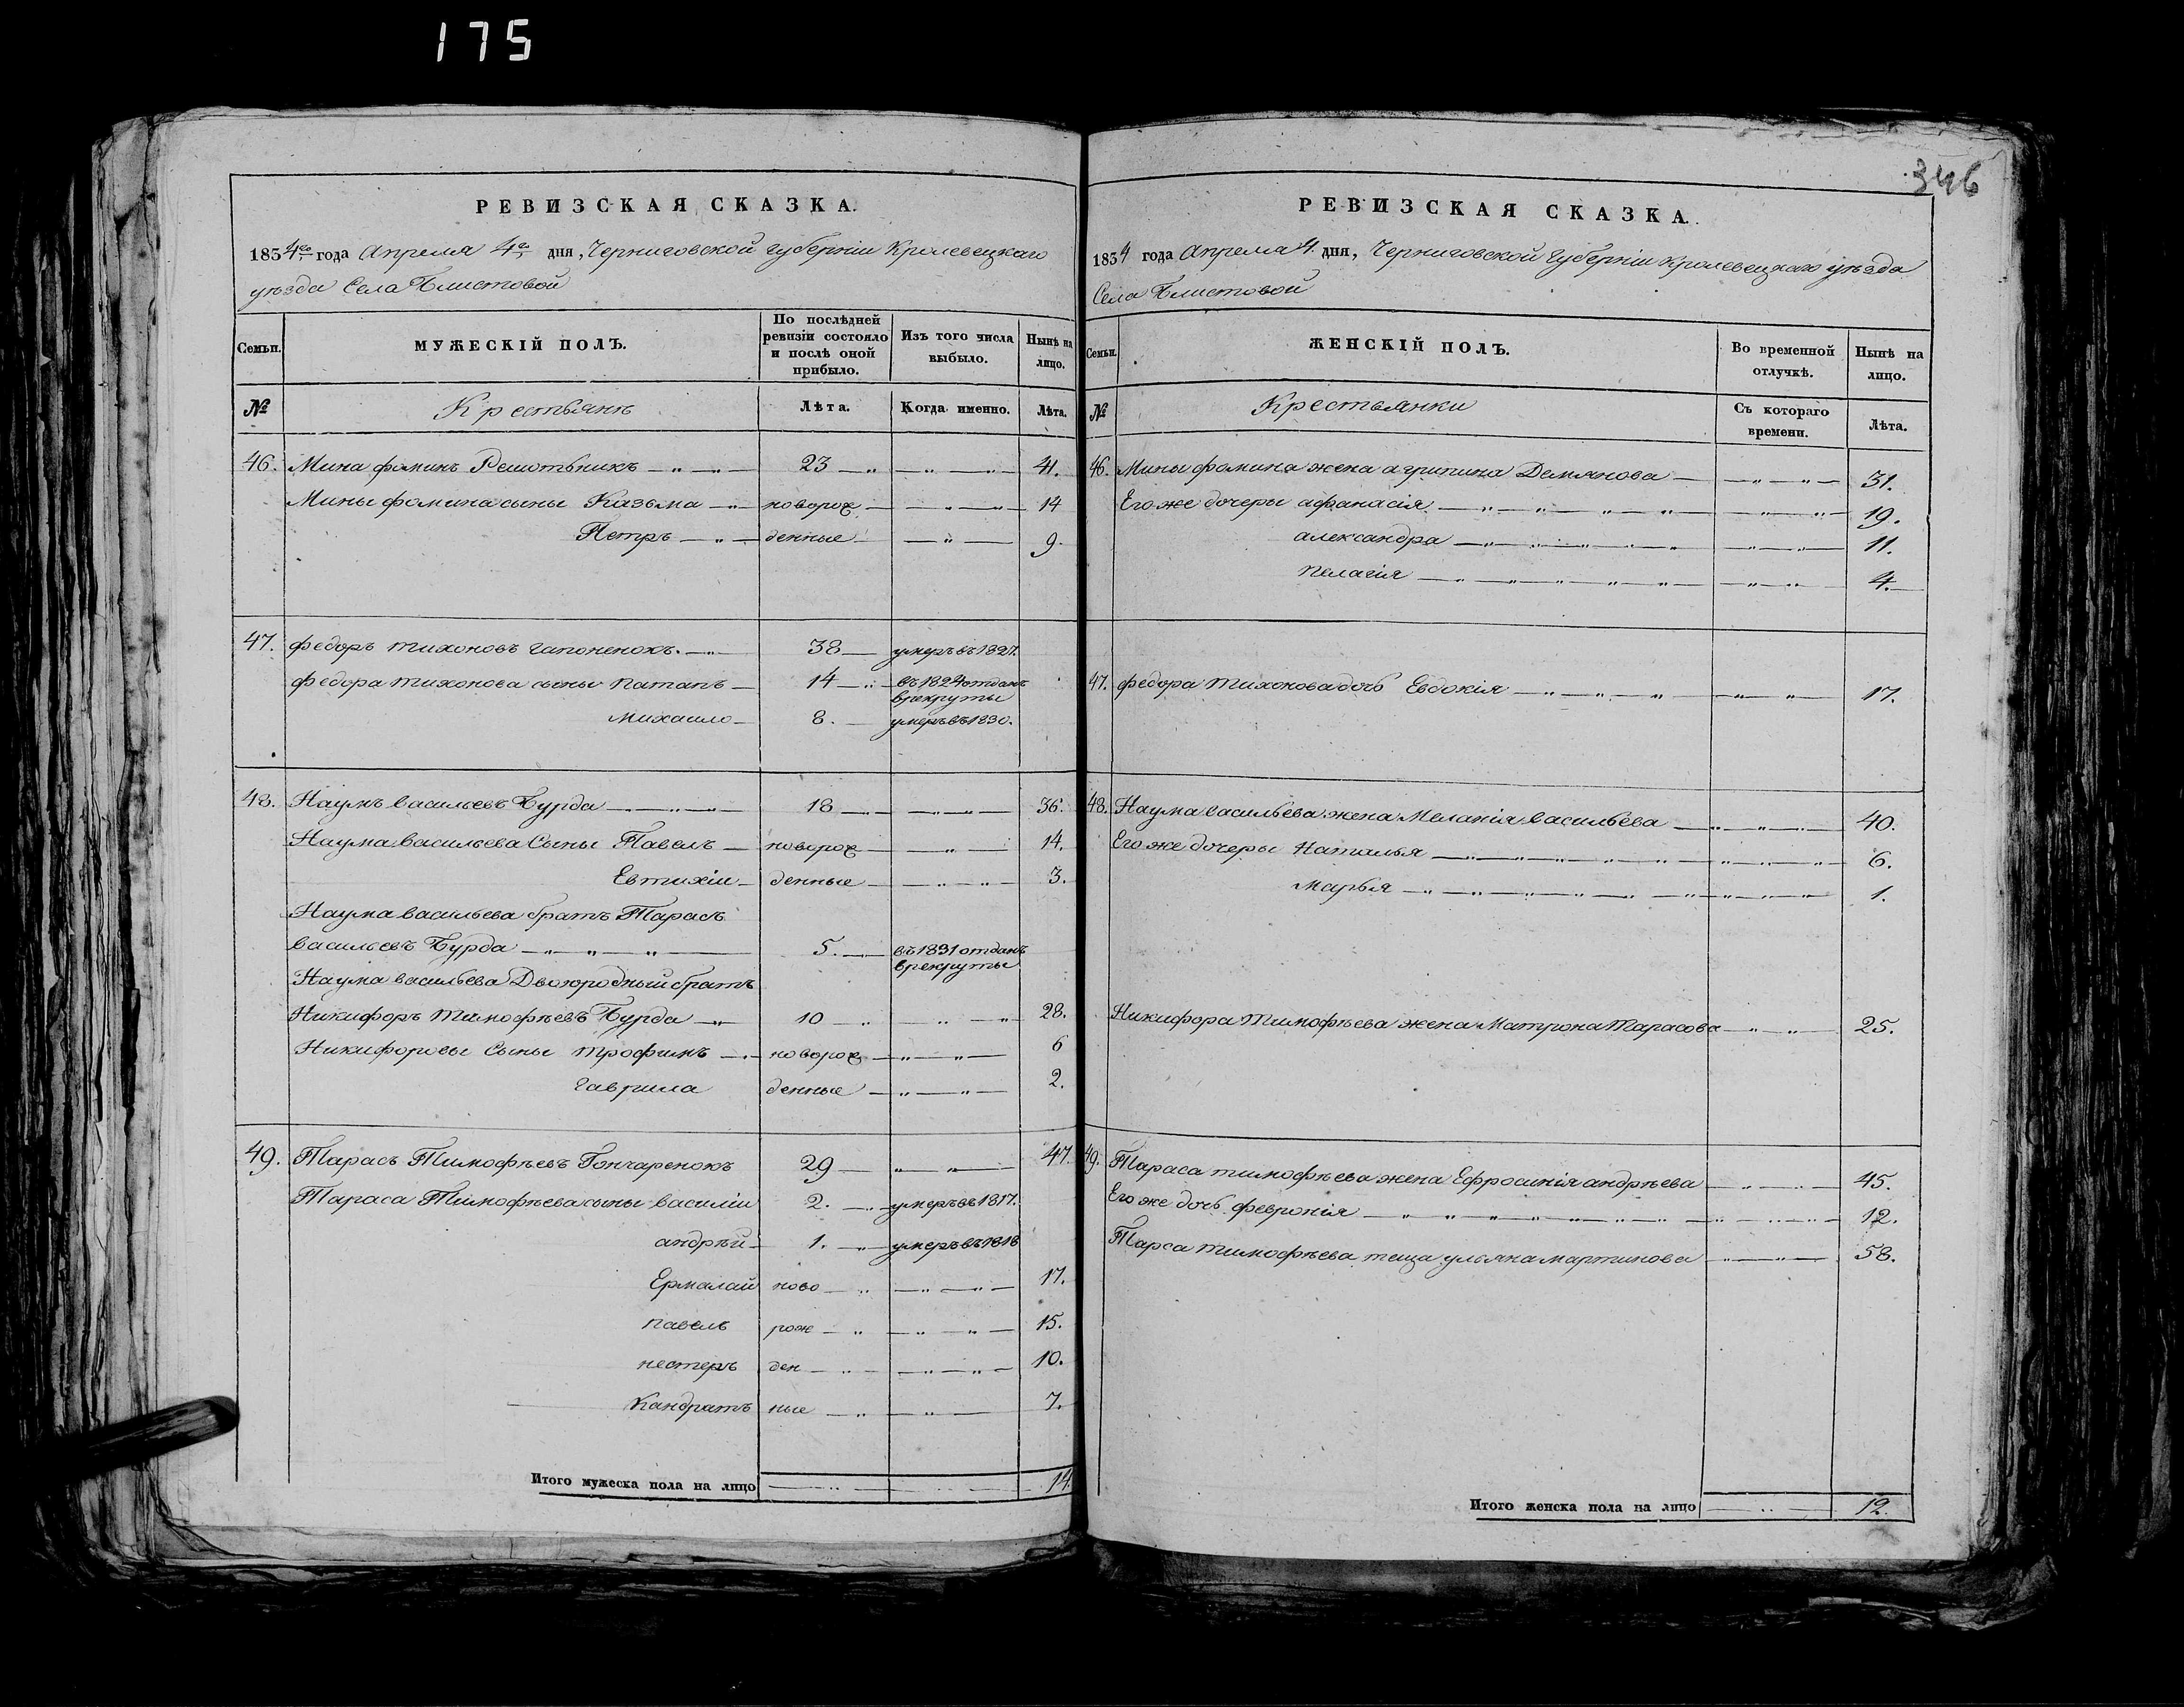 175
346
РЕВИЗСКАЯ СКАЗКА.
1834го года Апреля 4го дня, Черниговской губерніи Кролевецкаго
уезда Села Блистовой
Семьи. МУЖЕСКІЙ ПОЛЪ. По послѣдней ревизіи состояло и послѣ оной прибыло. Изъ того числа выбыло. Нынѣ на лицо.
№ Крестьянъ Лѣта. Когда именно. Лѣта.
46. Мина фоминъ Решотьникъ 23 41.
Мины фомина сыны Казьма новорож 14
Петръ денные 9.
47. федоръ тихоновъ гапоненокъ. 38 умеръ въ 1827.
федора тихонова сыны патапъ 14 въ 1824 отданъ
врекруты
Михаило 8. умеръ въ 1830.
48. Наумъ васильевъ Бурда 18 36.
Наума васильева Сыны Павелъ новорож 14.
Евтихіи денные 3.
Наума васильева братъ Тарасъ
васильевъ Бурда 5. въ 1831 отданъ
врекруты
Наума васильева Двоюродный братъ
Никифоръ тимофѣевъ Бурда 10 28.
Никифоровы Сыны трофимъ новорож 6
гаврила денные 2.
49. Тарасъ Тимофѣевъ Гончаренокъ 29 47.
Тараса Тимофѣева сыны василіи 2. умеръ въ 1817.
андрѣй 1. умеръ въ 1818
Ермалай ново 17.
павелъ рож 15.
нестеръ ден 10.
Кандратъ ные 7.
Итого мужеска пола на лицо 14.
РЕВИЗСКАЯ СКАЗКА.
1834 года Апреля 4. дня, Черниговской губерніи кролевецкаго уѣзда
Села Блистовой
Семьи. ЖЕНСКІЙ ПОЛЪ. Во временной отлучкѣ. Нынѣ на лицо.
№ Крестьянки Съ котораго времени. Лѣта.
46. Мины фомина жена агрипина Демянова 31.
Его же дочеры афанасія 19.
александра 11.
пелагія 4.
47. федора тихонова дочь Евдокія 17.
48. Наума васильева жена Меланія васильева 40.
Его же дочеры Наталья 6.
Марья 1.
Никифора тимофѣева жена Матрона тарасова 25.
49. Тараса тимофѣева жена Ефросинія андрѣева 45.
Его же дочь февронія 12.
Тарса тимофѣева теща ульяна мартинова 58.
Итого женска пола на лицо 12.